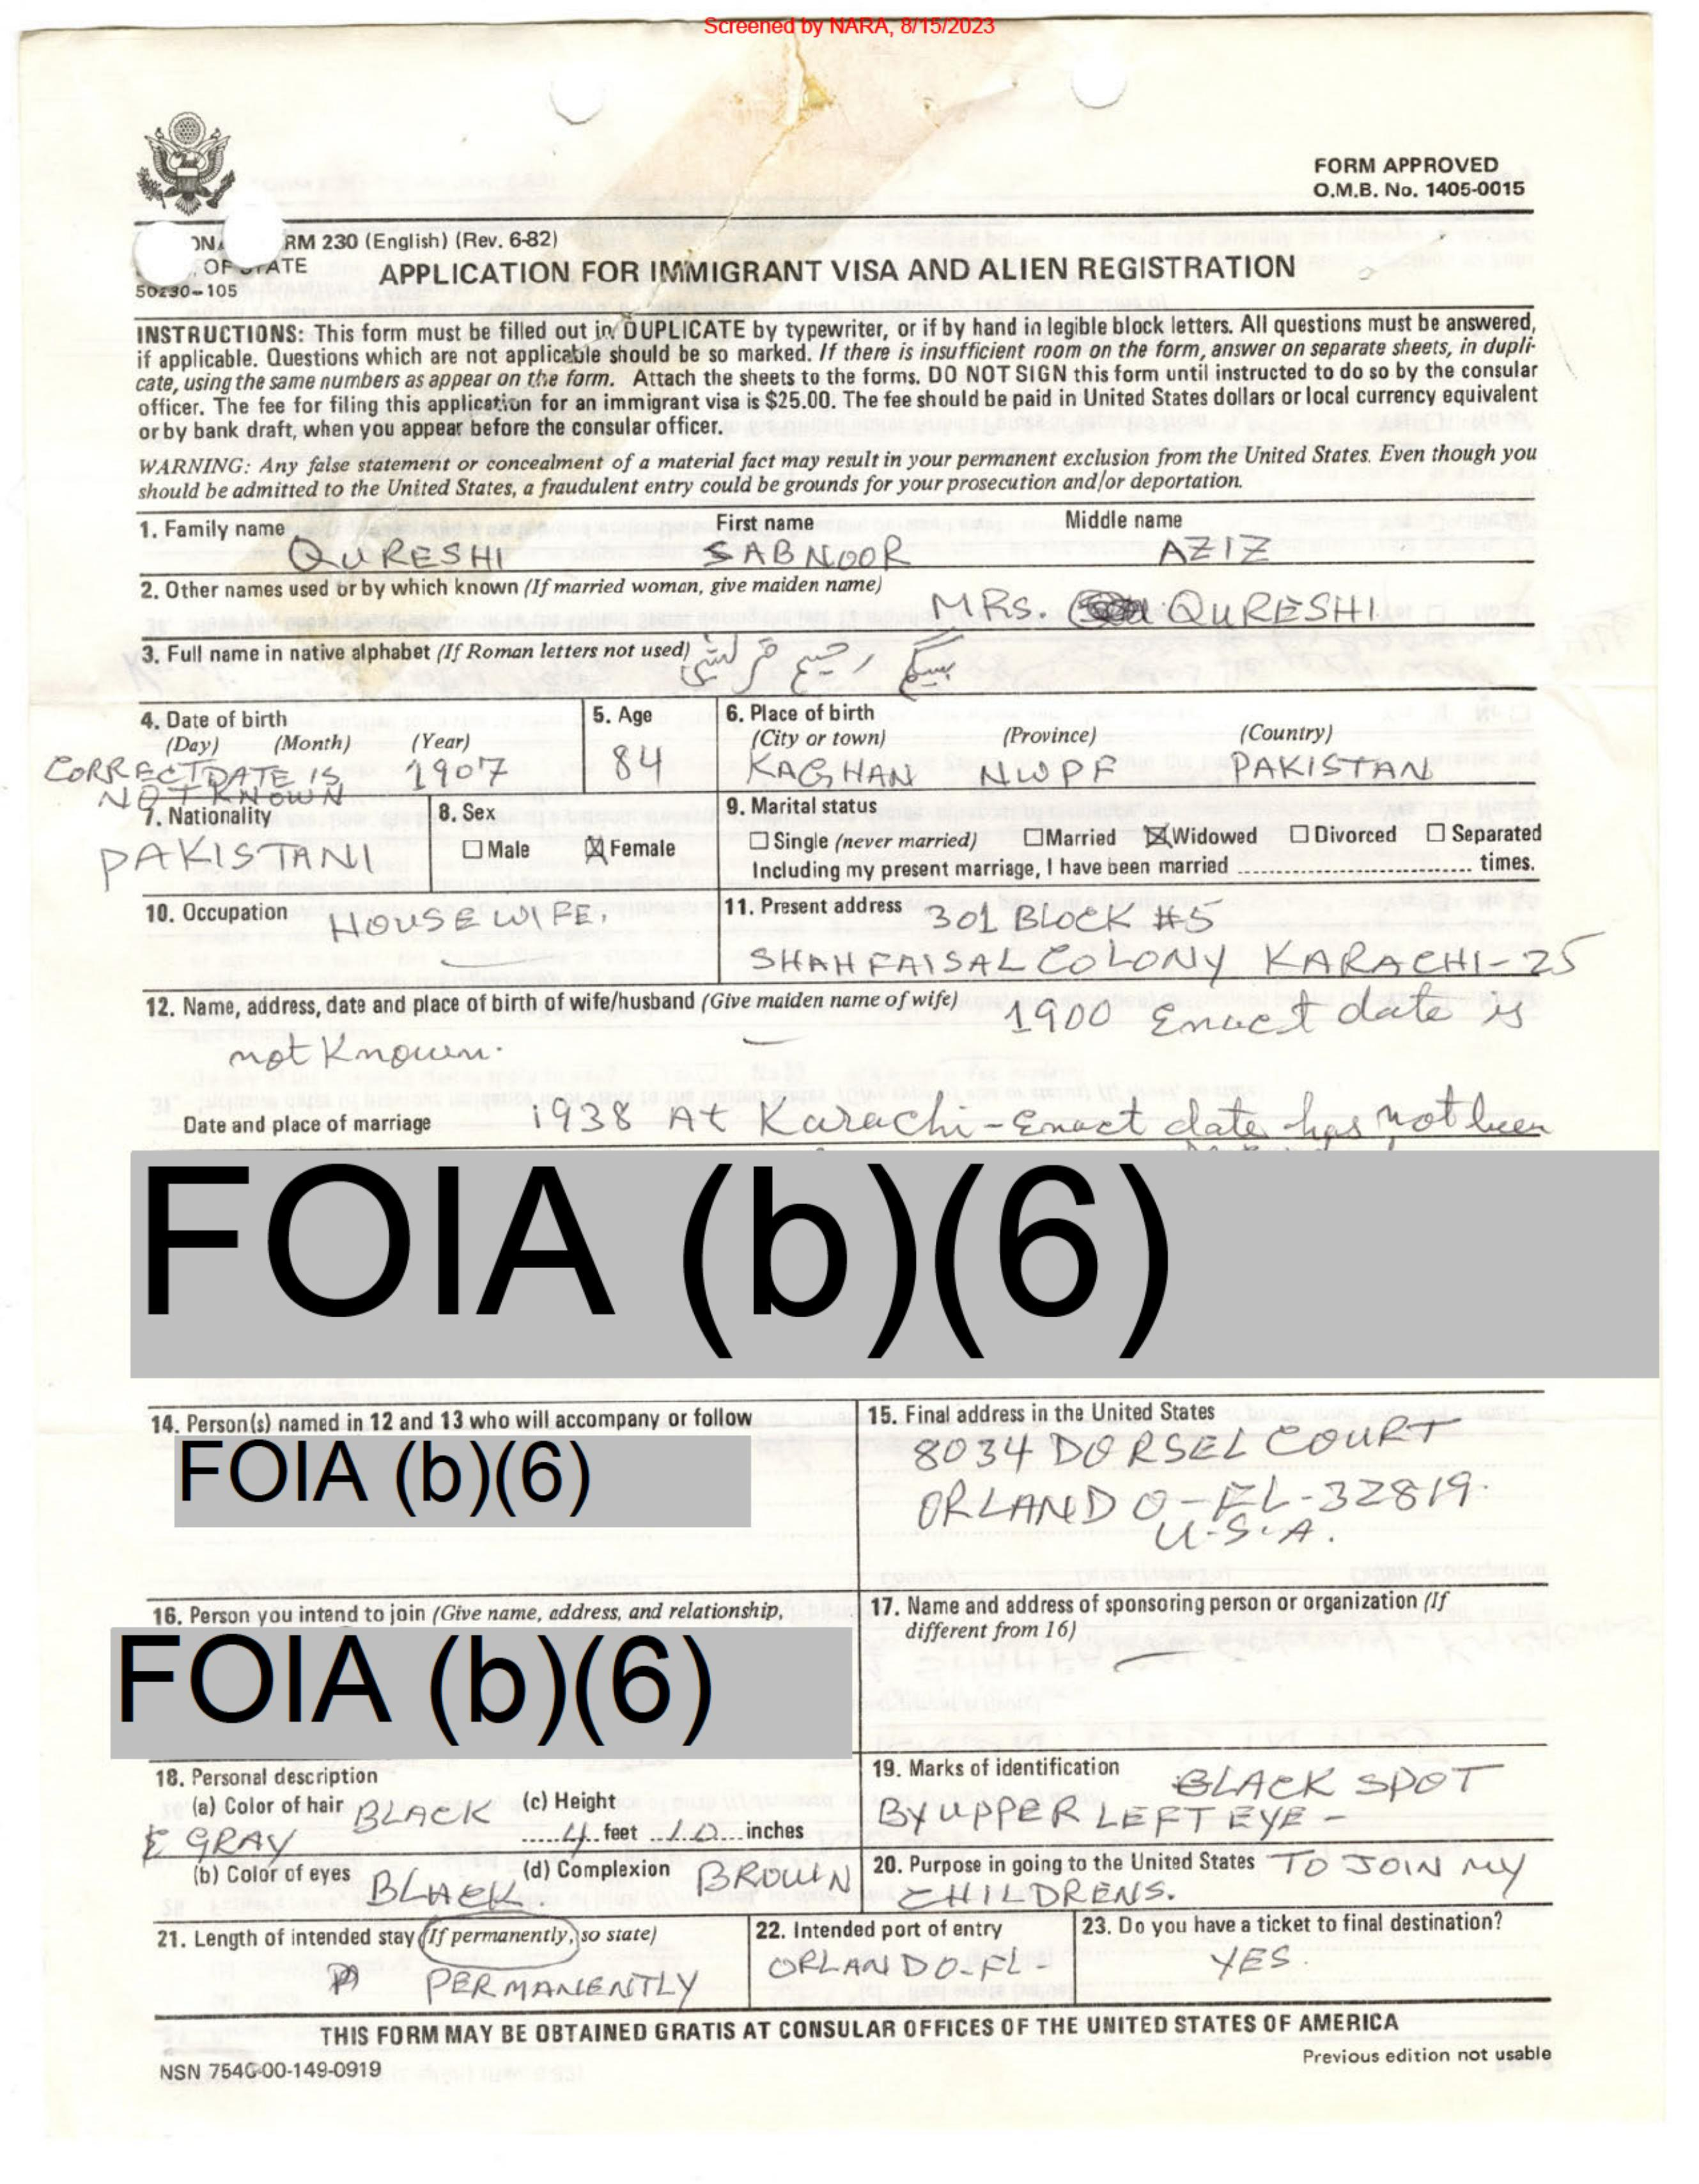 Screened by NARA, 8/15/2023
FORM APPROVED
O.M.B. No. 1405-0015
RM 230 (English) (Rev. 6-82)
OF STATE
50230-105
APPLICATION FOR IMMIGRANT VISA AND ALIEN REGISTRATION
INSTRUCTIONS: This form must be filled out in DUPLICATE by typewriter, or if by hand in legible block letters. All questions must be answered,
if applicable. Questions which are not applicable should be so marked. If there is insufficient room on the form, answer on separate sheets, in dupli-
cate, using the same numbers as appear on the form. Attach the sheets to the forms. DO NOT SIGN this form until instructed to do so by the consular
officer. The fee for filing this application for an immigrant visa is $25.00. The fee should be paid in United States dollars or local currency equivalent
or by bank draft, when you appear before the consular officer.
WARNING: Any false statement or concealment of a material fact may result in your permanent exclusion from the United States. Even though you
should be admitted to the United States, a fraudulent entry could be grounds for your prosecution and/or deportation.
1. Family name First name Middle name
QURESHI SABNOOR AZIZ
2. Other names used or by which known (If married woman, give maiden name)
MRS. QURESHI
3. Full name in native alphabet (If Roman letters not used)
4. Date of birth
(Day) (Month) (Year)
CORRECT DATE IS 1907
NOT KNOWN
5. Age
84
6. Place of birth
(City or town) (Province) (Country)
KAGHAN NWPF PAKISTAN
7. Nationality
PAKISTANI
8. Sex
Male Female
9. Marital status
Single (never married) Married Widowed Divorced Separated
Including my present marriage, I have been married times.
10. Occupation HOUSEWIFE.
11. Present address 301 BLOCK #5
SHAH FAISAL COLONY KARACHI-25
12. Name, address, date and place of birth of wife/husband (Give maiden name of wife)
1900 Enact date is
not Known.
Date and place of marriage 1938 At Karachi - Enact date has not been
FOIA (b)(6)
14. Person(s) named in 12 and 13 who will accompany or follow
FOIA (b)(6)
15. Final address in the United States
8034 DORSEL COURT
ORLANDO-FL-32819.
U.S.A.
16. Person you intend to join (Give name, address, and relationship,
FOIA (b)(6)
17. Name and address of sponsoring person or organization (If
different from 16)
18. Personal description
(a) Color of hair BLACK
& GRAY
(c) Height
4 feet 10 inches
(b) Color of eyes BLACK.
(d) Complexion BROWN
19. Marks of identification BLACK SPOT
BY UPPER LEFT EYE -
20. Purpose in going to the United States TO JOIN MY
CHILDRENS.
21. Length of intended stay (If permanently, so state)
PERMANENTLY
22. Intended port of entry
ORLANDO-FL-
23. Do you have a ticket to final destination?
YES.
THIS FORM MAY BE OBTAINED GRATIS AT CONSULAR OFFICES OF THE UNITED STATES OF AMERICA
NSN 7540-00-149-0919
Previous edition not usable